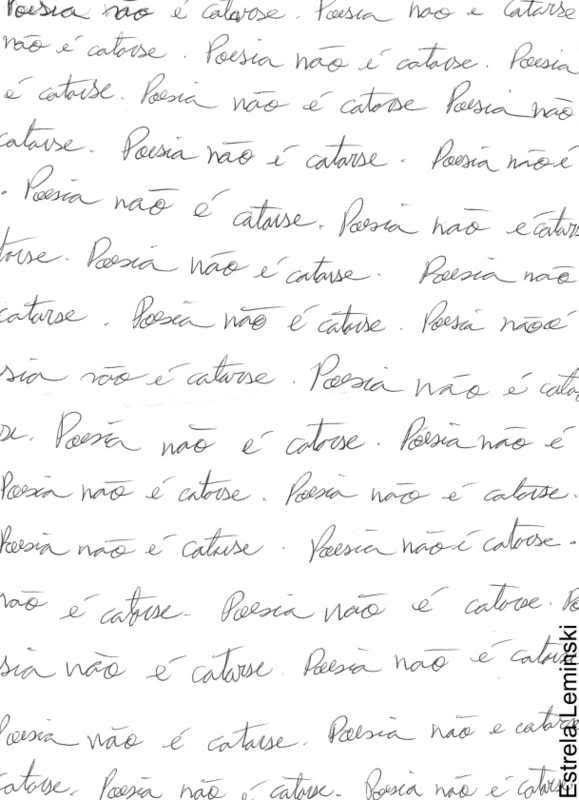 Poesia não é catarse. Poesia não é catarse
não é catarse. Poesia não é catarse. Poesia
é catarse. Poesia não é catarse Poesia não
catarse. Poesia não é catarse. Poesia não é
. Poesia não é catarse. Poesia não é catars
tarse. Poesia não é catarse. Poesia não
catarse. Poesia não é catarse. Poesia não é
sia não é catarse. Poesia não é catar
se. Poesia não é catarse. Poesia não é
Poesia não é catarse. Poesia não é catarse.
Poesia não é catarse. Poesia não é catarse.
não é catarse. Poesia não é catarse. Po
sia não é catarse. Poesia não é catarse
Poesia não é catarse. Poesia não e catarse
catarse. Poesia não é catarse. Poesia não é catarse
Estrela Leminski